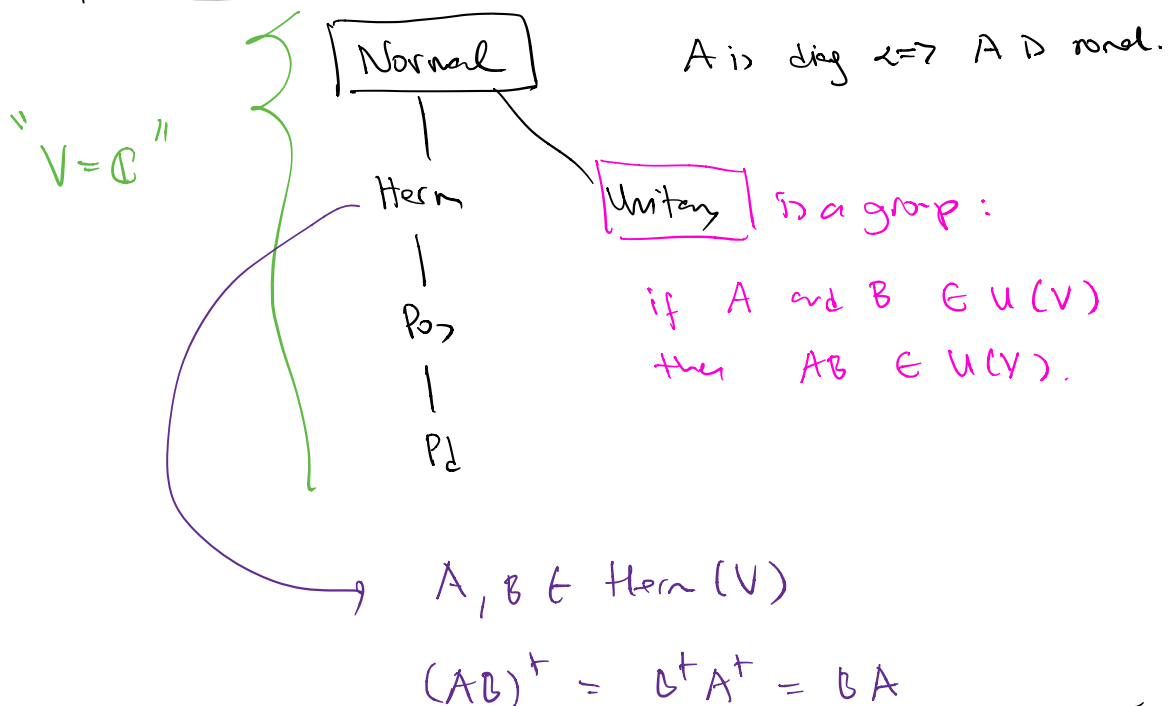 Normal
A is diag <=> A is normal.
"V = ℂ"
Herm
Unitary is a group :
if A and B ∈ U(V)
Pos
then AB ∈ U(V).
Pd
A, B ∈ Herm (V)
(AB)† = B†A† = BA